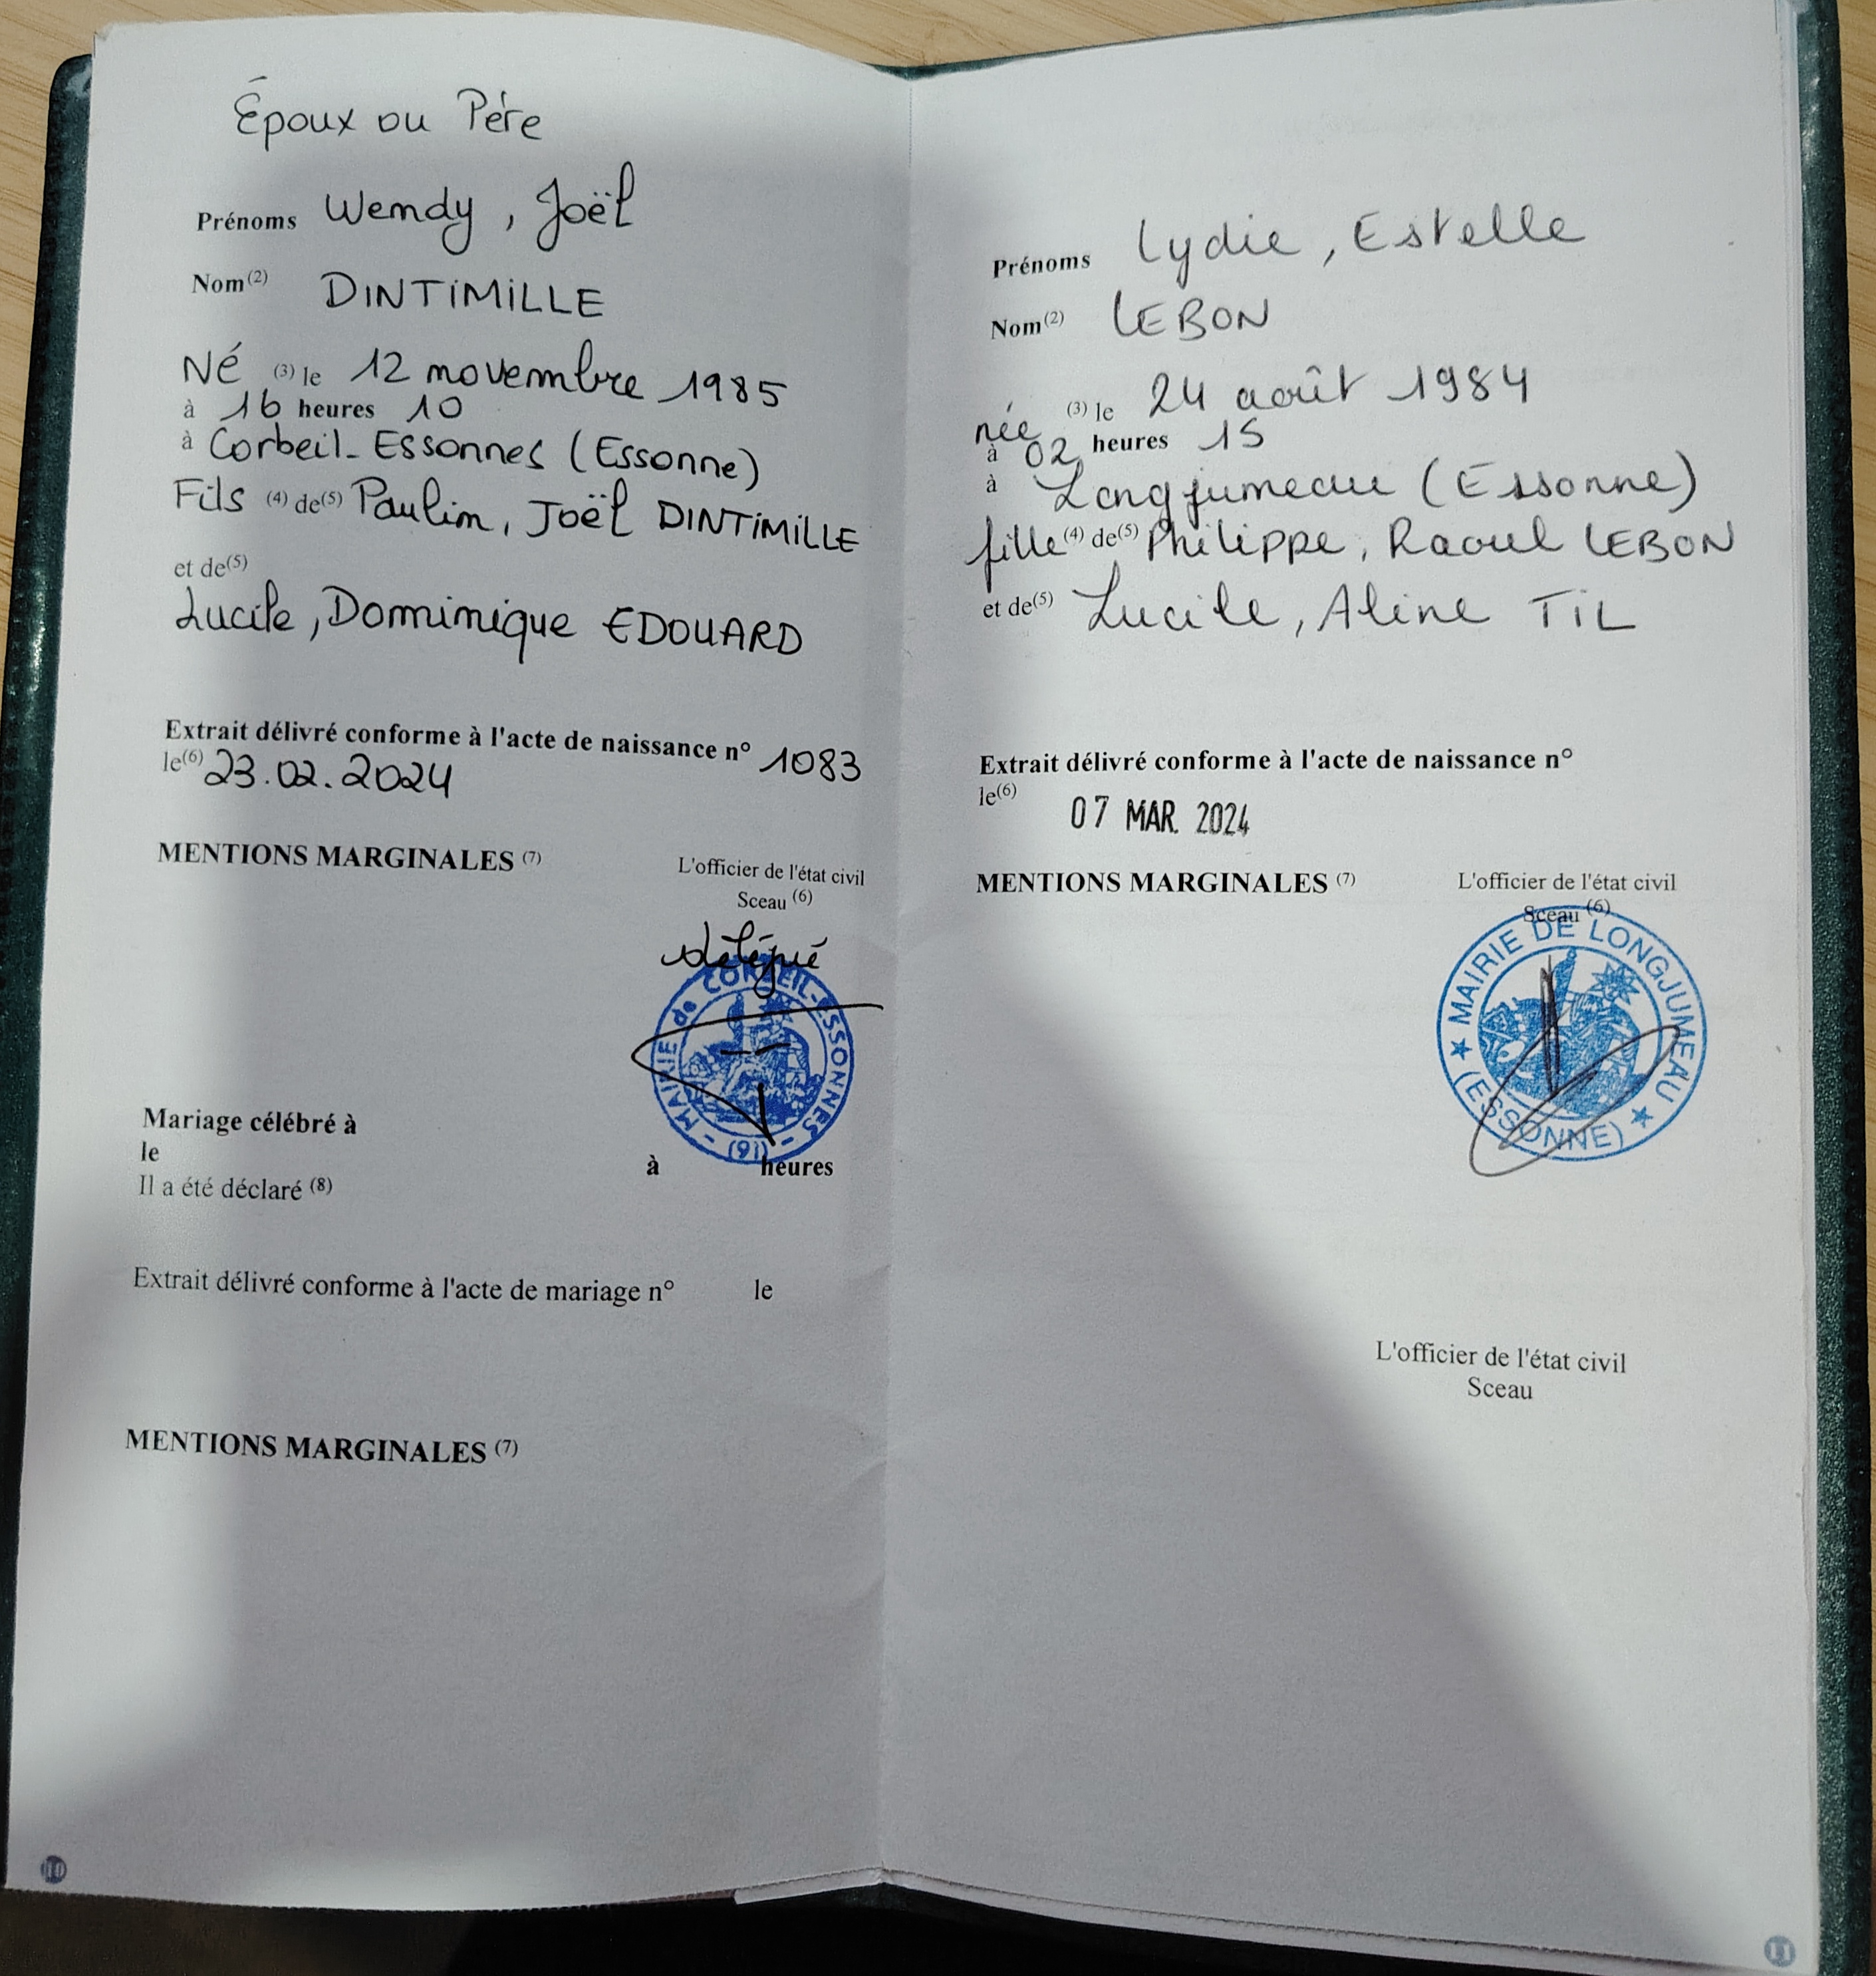 Époux ou Père
Prénoms Wendy, Joël
Nom(2) DINTIMILLE
Né (3) le 12 novembre 1985
à 16 heures 10
à Corbeil-Essonnes (Essonne)
Fils (4) de(5) Paulin, Joël DINTIMILLE
et de(5)
Lucile, Dominique EDOUARD
Extrait délivré conforme à l'acte de naissance n° 1083
le(6) 23.02.2024
MENTIONS MARGINALES (7)
L'officier de l'état civil
Sceau (6)
délégué
MAIRIE de CORBEIL-ESSONNES - (91) -
Mariage célébré à
le à heures
Il a été déclaré (8)
Extrait délivré conforme à l'acte de mariage n° le
MENTIONS MARGINALES (7)
10
Prénoms Lydie, Estelle
Nom(2) LEBON
née (3) le 24 août 1984
à 02 heures 15
à Longjumeau (Essonne)
fille (4) de(5) Philippe, Raoul LEBON
et de(5) Lucile, Aline TIL
Extrait délivré conforme à l'acte de naissance n°
le(6)
07 MAR. 2024
MENTIONS MARGINALES (7)
L'officier de l'état civil
Sceau (6)
★ MAIRIE DE LONGJUMEAU ★ (ESSONNE)
L'officier de l'état civil
Sceau
11